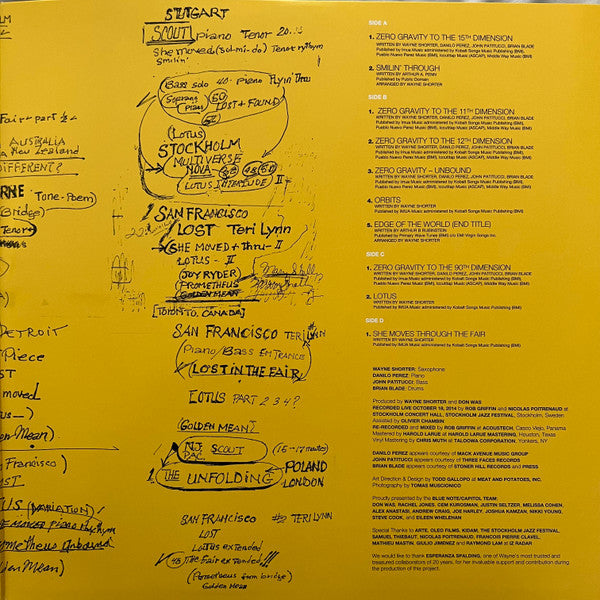 LM
Fair - part 1/2
AUSTRALIA
New Zealand
DIFFERENT?
RNE Tone-Poem
Bridge)
Tenor
DETROIT
Piece
ST
moved
us—)
en Mean)
Francisco)
ST
TUS (VARIATION)
piano rhythm
ometheus Unbound
den Mean)
STUTGART
SCOUT piano Tenor 20..
she moved (sol-mi-do) Tenor rythym
Smilin'
(Bass solo 40. piano Flyin' Thru
Soprano Piano
60
LOST + FOUND
(LOTUS)
STOCKHOLM
MULTIVERSE
NOVA
LOTUS INTERLUDE II
SAN FRANCISCO
LOST Teri Lynn
SHE MOVED + Thru - II
LOTUS - II
(JOY RYDER)
PROMETHEUS
GOLDEN MEAN
[TORONTO, CANADA]
SAN FRANCISCO TERI LYNN
(Piano/Bass ENTRANCE
(LOST IN THE FAIR)
LOTUS PART 2 3 4?
(GOLDEN MEAN)
N.J. PAC. SCOUT (15-17 minutes)
THE UNFOLDING
POLAND
LONDON
SAN FRANCISCO #2 TERI LYNN
LOST
LOTUS extended
The Fair extended!!!
(Prometheus from bridge)
Golden Mean
SIDE A
1. ZERO GRAVITY TO THE 15TH DIMENSION
WRITTEN BY WAYNE SHORTER, DANILO PEREZ, JOHN PATITUCCI, BRIAN BLADE
Published by Imua Music administered by Kobalt Songs Music Publishing (BMI),
Pueblo Nuevo Panei Music (BMI), Iccultap Music (ASCAP), Middle Way Music (BMI)
2. SMILIN' THROUGH
WRITTEN BY ARTHUR A. PENN
Published by Public Domain
ARRANGED BY WAYNE SHORTER
SIDE B
1. ZERO GRAVITY TO THE 11TH DIMENSION
WRITTEN BY WAYNE SHORTER, DANILO PEREZ, JOHN PATITUCCI, BRIAN BLADE
Published by Imua Music administered by Kobalt Songs Music Publishing (BMI),
Pueblo Nuevo Panei Music (BMI), Iccultap Music (ASCAP), Middle Way Music (BMI)
2. ZERO GRAVITY TO THE 12TH DIMENSION
WRITTEN BY WAYNE SHORTER, DANILO PEREZ, JOHN PATITUCCI, BRIAN BLADE
Published by Imua Music administered by Kobalt Songs Music Publishing (BMI),
Pueblo Nuevo Panei Music (BMI), Iccultap Music (ASCAP), Middle Way Music (BMI)
3. ZERO GRAVITY – UNBOUND
WRITTEN BY WAYNE SHORTER, DANILO PEREZ, JOHN PATITUCCI, BRIAN BLADE
Published by Imua Music administered by Kobalt Songs Music Publishing (BMI),
Pueblo Nuevo Panei Music (BMI), Iccultap Music (ASCAP), Middle Way Music (BMI)
4. ORBITS
WRITTEN BY WAYNE SHORTER
Published by IMUA Music administered by Kobalt Songs Music Publishing (BMI)
5. EDGE OF THE WORLD (END TITLE)
WRITTEN BY ARTHUR B RUBINSTEIN
Published by Primary Wave Tunes (BMI) o/b/o EMI Virgin Songs Inc.
ARRANGED BY WAYNE SHORTER
SIDE C
1. ZERO GRAVITY TO THE 90TH DIMENSION
WRITTEN BY WAYNE SHORTER, DANILO PEREZ, JOHN PATITUCCI, BRIAN BLADE
Published by Imua Music administered by Kobalt Songs Music Publishing (BMI),
Pueblo Nuevo Panei Music (BMI), Iccultap Music (ASCAP), Middle Way Music (BMI)
2. LOTUS
WRITTEN BY WAYNE SHORTER
Published by IMUA Music administered by Kobalt Songs Music Publishing (BMI)
SIDE D
1. SHE MOVES THROUGH THE FAIR
WRITTEN BY WAYNE SHORTER
Published by IMUA Music administered by Kobalt Songs Music Publishing (BMI)
WAYNE SHORTER: Saxophone
DANILO PEREZ: Piano
JOHN PATITUCCI: Bass
BRIAN BLADE: Drums
Produced by WAYNE SHORTER and DON WAS
RECORDED LIVE OCTOBER 18, 2014 by ROB GRIFFIN and NICOLAS POITRENAUD at
STOCKHOLM CONCERT HALL, STOCKHOLM JAZZ FESTIVAL, Stockholm, Sweden
Assisted by OLIVIER CHAMBIN
RE-RECORDED and MIXED by ROB GRIFFIN at ACOUSTECH, Casco Viejo, Panama
Mastered by HAROLD LARUE at HAROLD LARUE MASTERING, Houston, Texas
Vinyl Mastering by CHRIS MUTH at TALOOWA CORPORATION, Yonkers, NY
DANILO PEREZ appears courtesy of MACK AVENUE MUSIC GROUP
JOHN PATITUCCI appears courtesy of THREE FACES RECORDS
BRIAN BLADE appears courtesy of STONER HILL RECORDS and PRESS
Art Direction & Design by TODD GALLOPO @ MEAT AND POTATOES, INC.
Photography by TOMAS MUSCIONICO
Proudly presented by the BLUE NOTE/CAPITOL TEAM:
DON WAS, RACHEL JONES, CEM KUROSMAN, JUSTIN SELTZER, MELISSA COHEN,
ALEX ANASTASI, ANDREW CRAIG, JOE HARLEY, JOSHUA KAMZAN, NIKKI YOUNG,
STEVE COOK, and EILEEN WHELEHAN
Special Thanks to ARTE, OLEO FILMS, KIDAM, THE STOCKHOLM JAZZ FESTIVAL,
SAMUEL THIEBAUT, NICOLAS POITRENAUD, FRANCOIS PIERRE CLAVEL,
MATHIEU MASTIN, GIULIO JIMENEZ and RAYMOND LAM at IZ RADAR
We would like to thank ESPERANZA SPALDING, one of Wayne's most trusted and
treasured collaborators of 20 years, for her invaluable support and contribution during
the production of this project.